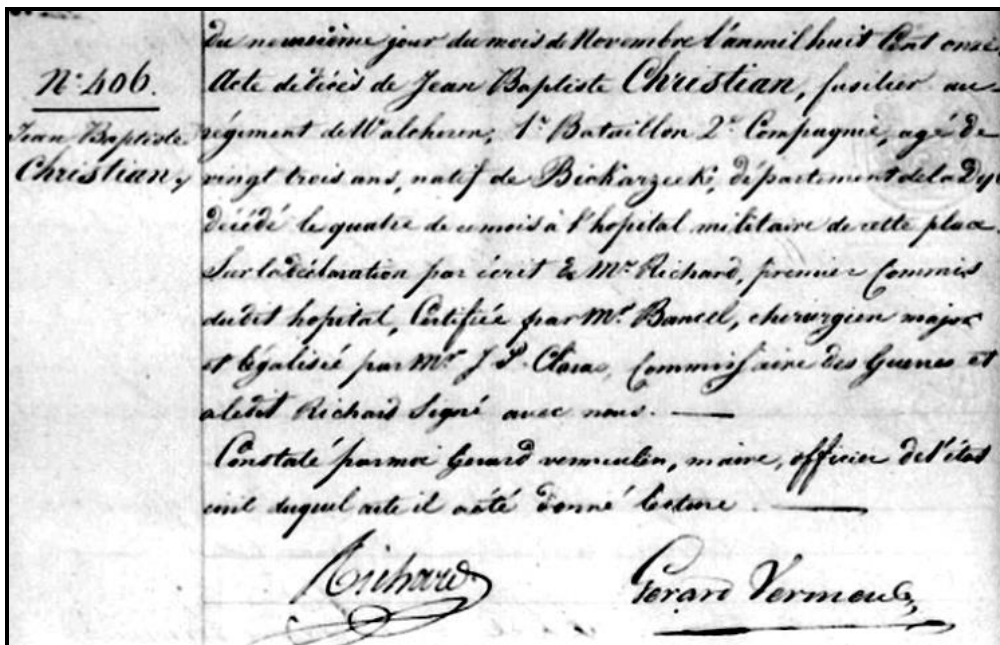 du neuvième jour du mois de Novembre l'an mil huit Cent onze
N.° 406.
Acte de décès de Jean Baptiste Christian, fusilier au
Jean Baptiste
Christian,
régiment de Walcheren, 1.r Bataillon 2.e Compagnie, agé de
vingt trois ans, natif de département de la Dyle
décédé le quatre de ce mois à l'hopital militaire de cette place.
Sur la déclaration par écrit de Mr Richard, premier Commis
du dit hopital, Certifiée par Mr. Bancel, chirurgien major
et légalisée par Mr J. P. Commissaire des Guerres et
a ledit Richard Signé avec nous.
Constaté par moi Gerard vermeulen, maire, officier de l'état
civil duquel acte il a été donné lecture
Richard
Gerard Vermeulen